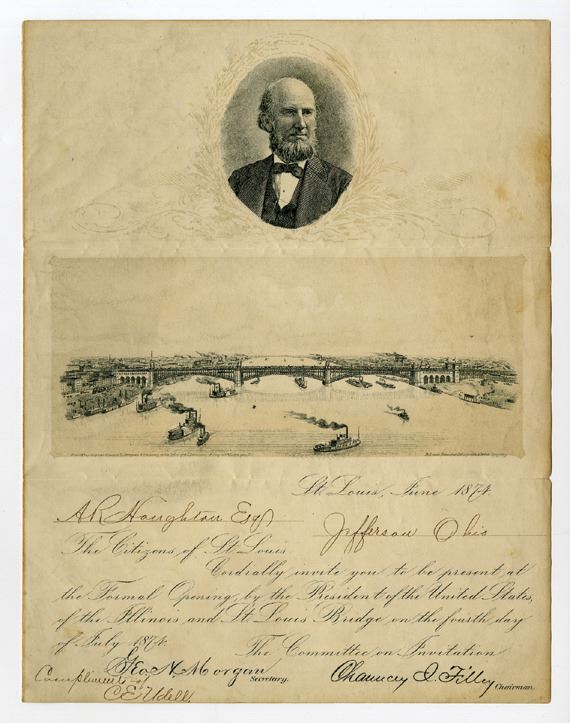 St. Louis, June 1874
A R Houghton Esq Jefferson Ohio
The Citizens of St. Louis
Cordially invite you to be present at
the Formal Opening, by the President of the United States,
of the Illinois and St. Louis Bridge on the fourth day
of July 1874. The Committee on Invitation
Geo. N. Morgan Secretary. Chauncey I. Filley Chairman.
Compliments of
C E Udell.